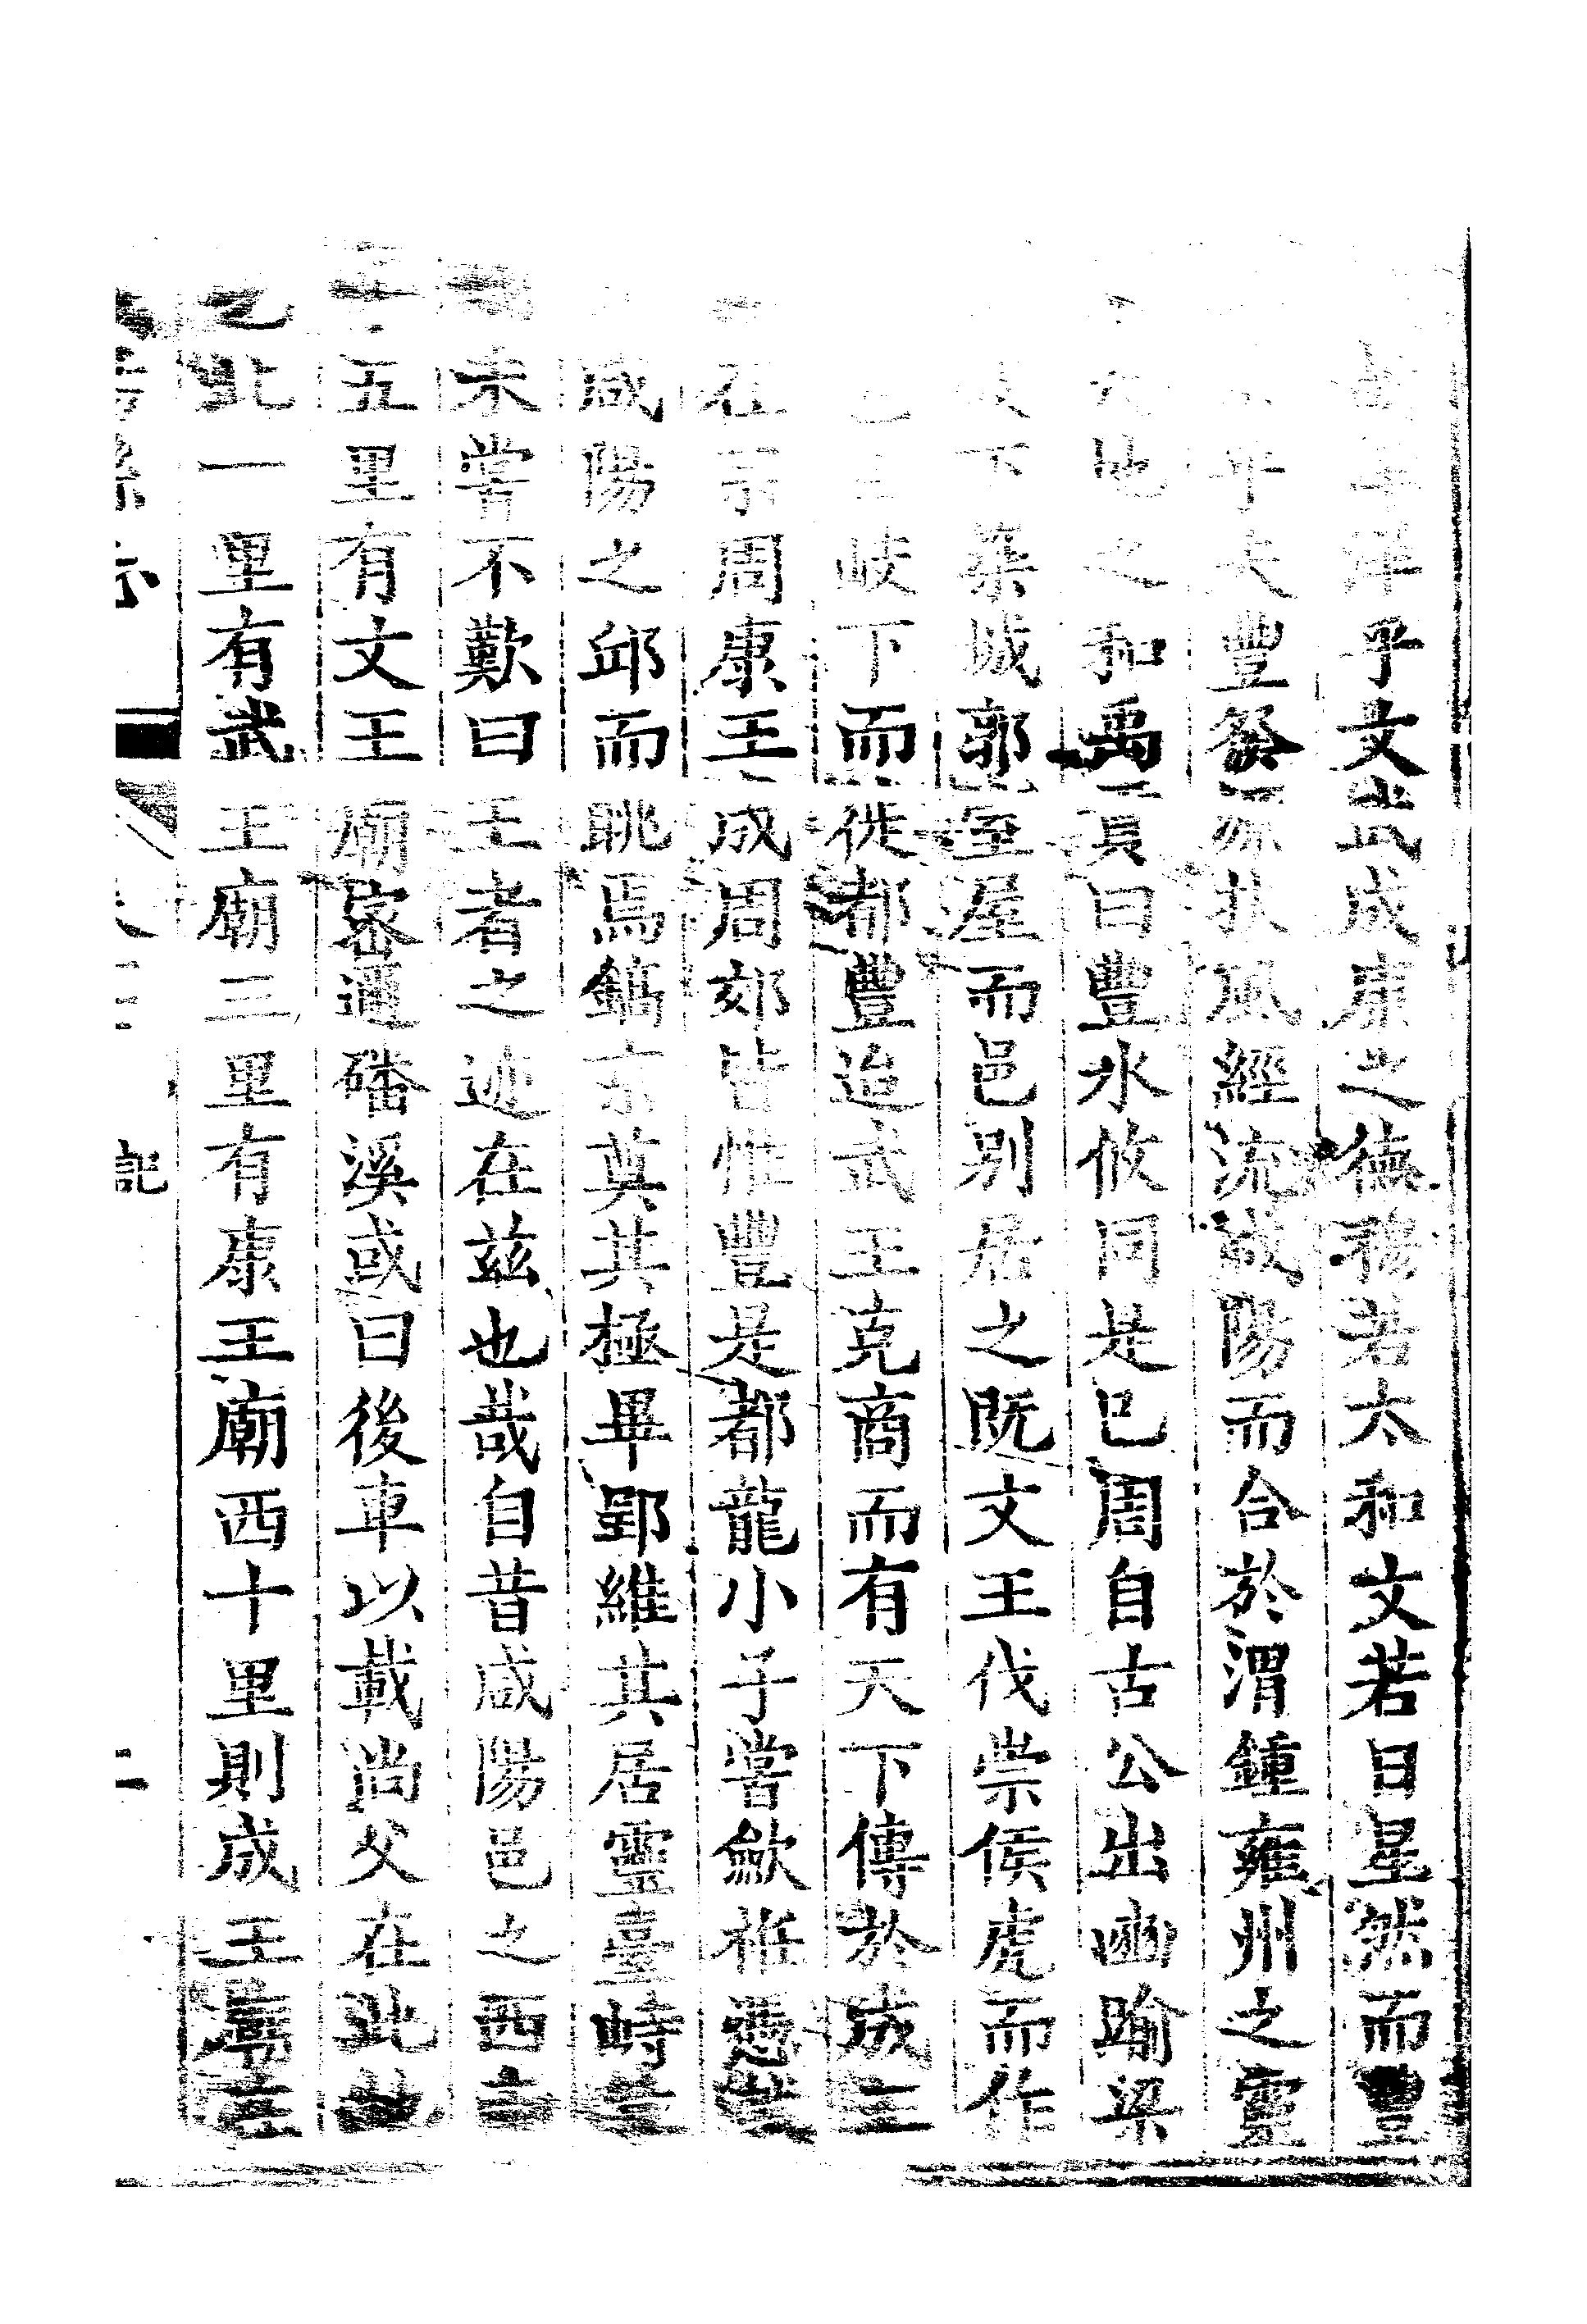 洋乎文武成康之德穆若太和文若日星然而豐
乎夫豐發源扶風經流咸陽而合於渭鍾雍州之靈
地之和禹貢曰豐水攸同是已周自古公出豳踰梁
下築城郭室屋而邑別居之既文王伐崇侯虎而作
岐下而徙都豐迨武王克商而有天下傳於成王
在宗周康王成周郊皆惟豐是都龍小子嘗歛袵
咸陽之邱而眺焉鎬京奠其極畢郢維其居靈臺峙
未嘗不歎曰王者之迹在茲也哉自昔咸陽邑之西
五里有文王廟密邇磻溪或曰後車以載尚父在此
之北一里有武王廟三里有康王廟西十里則成王廟
記
二